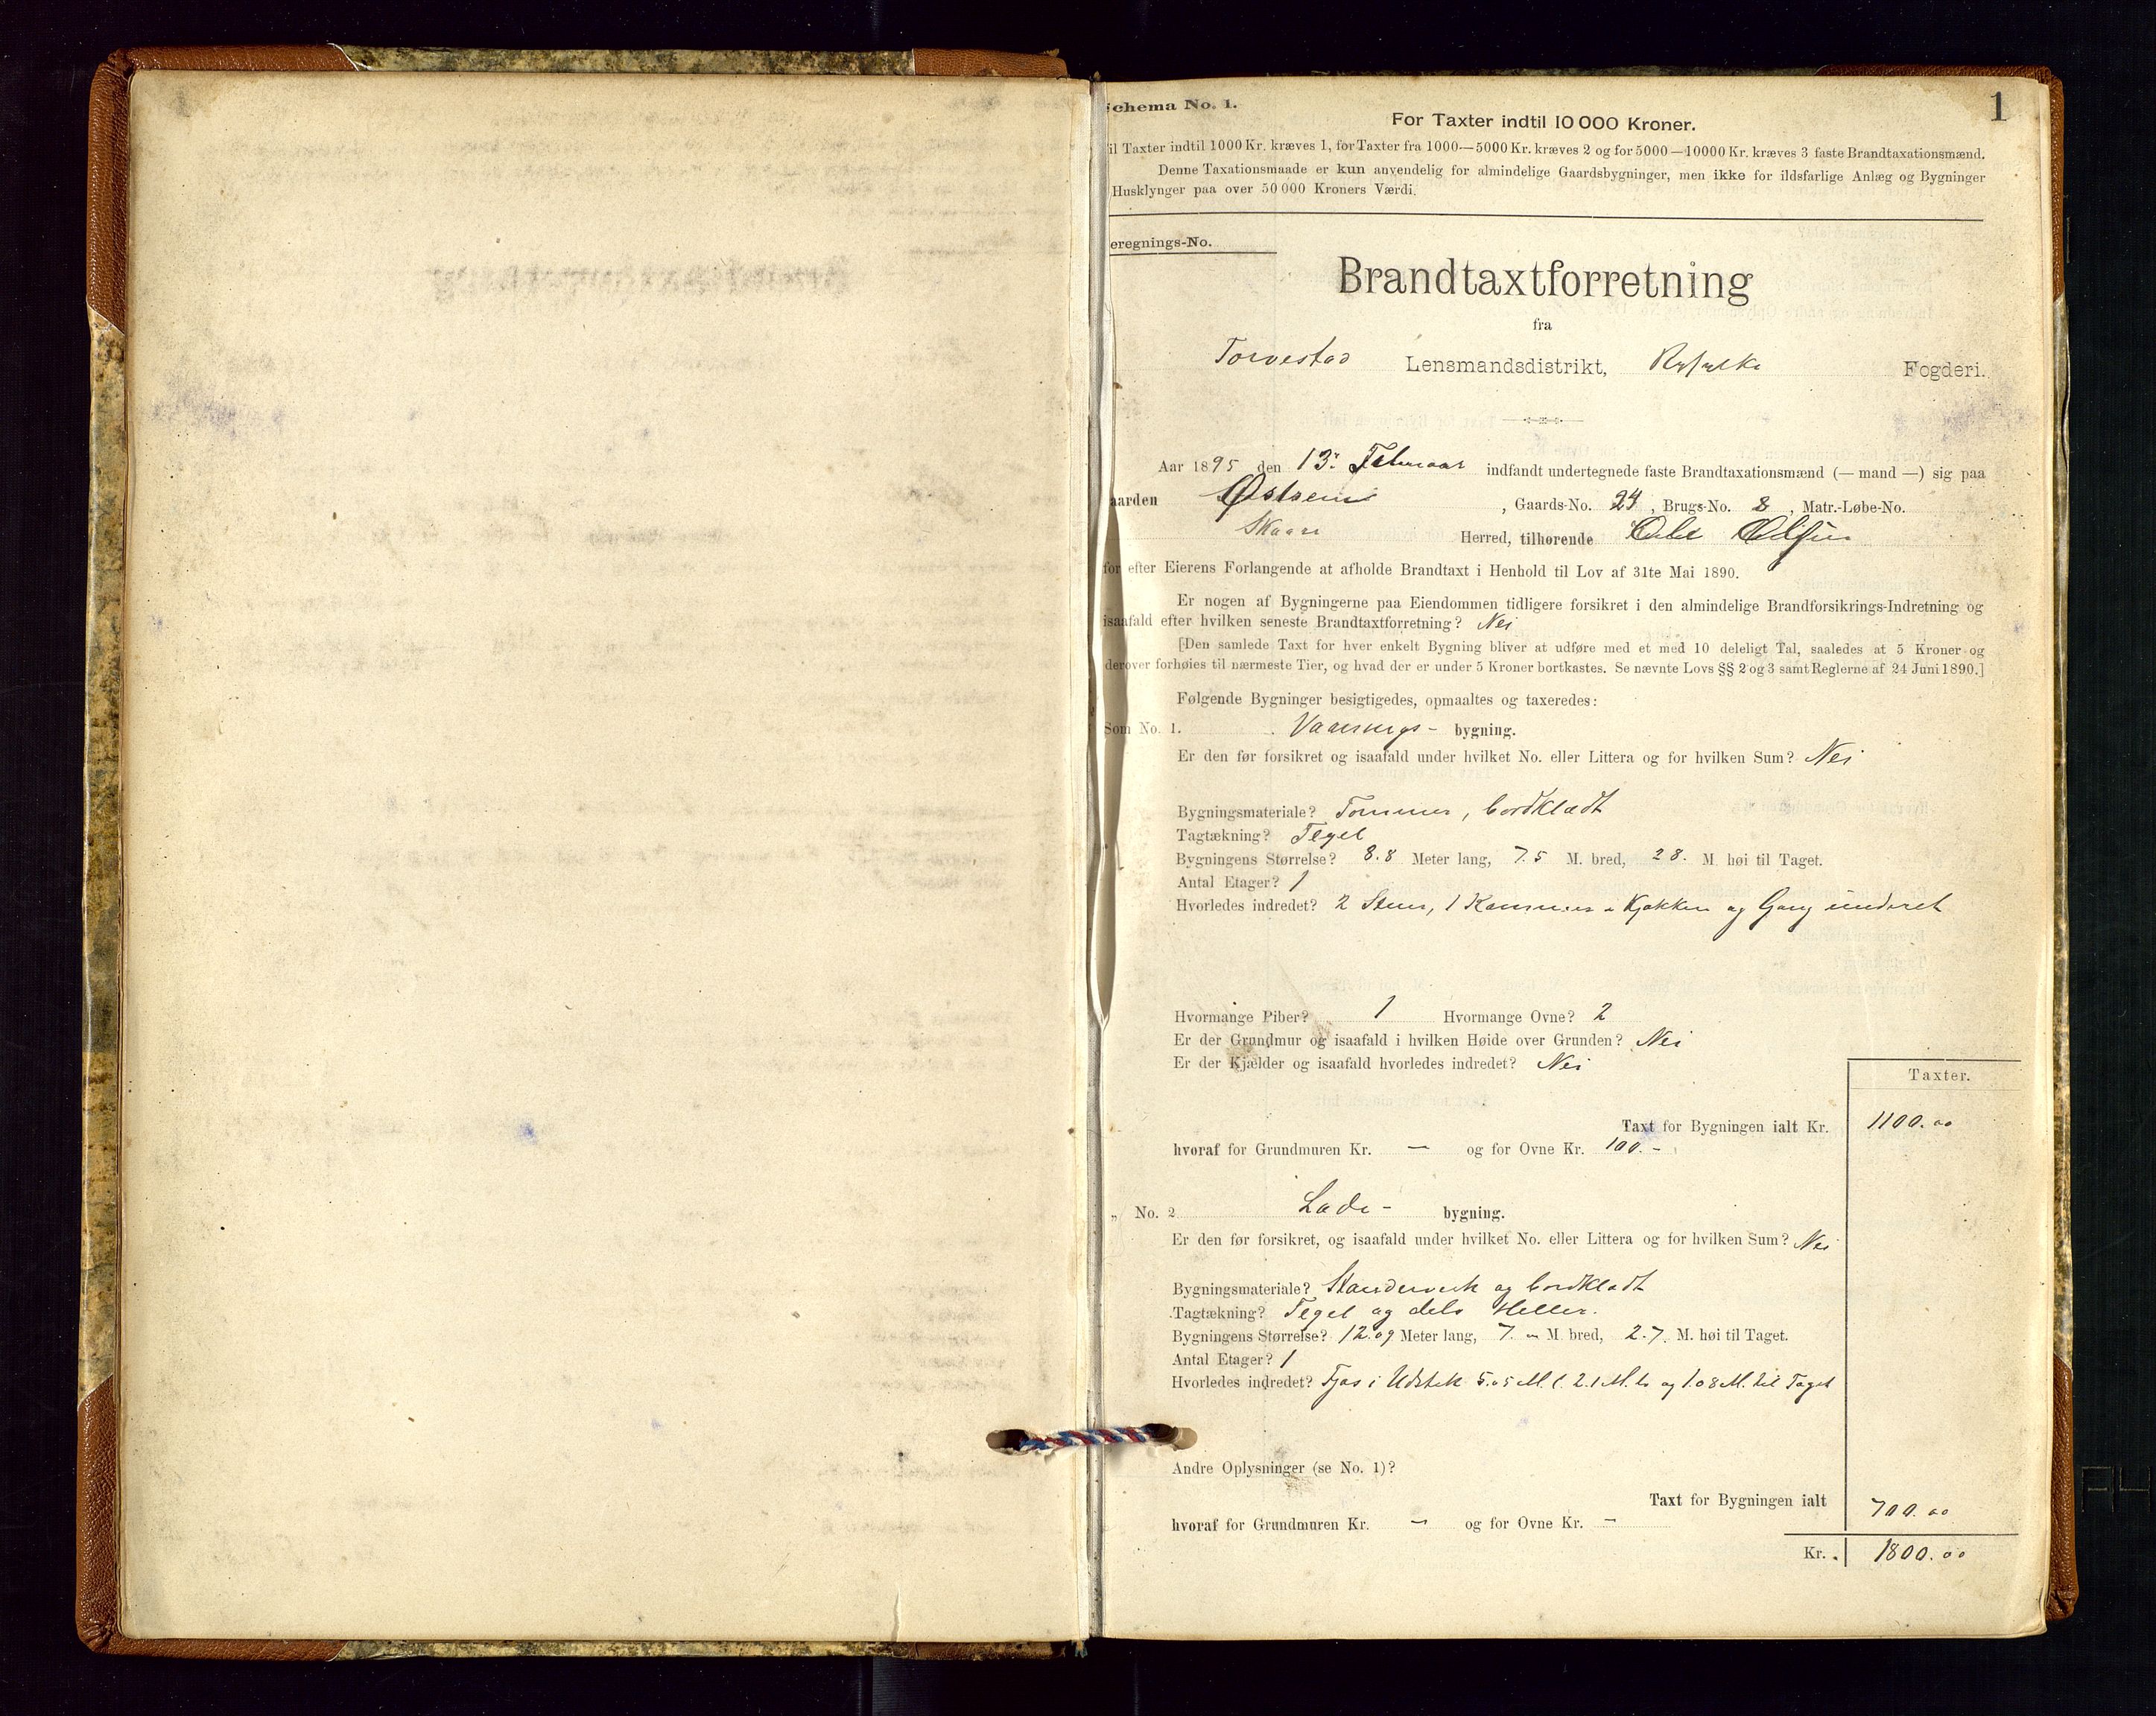 1
Schema No. 1.
For Taxter indtil 10 000 Kroner.
il Taxter indtil 1000 Kr. kræves 1, for Taxter fra 1000—5000 Kr. kræves 2 og for 5000—10000 Kr. kræves 3 faste Brandtaxationsmænd.
Denne Taxationsmaade er kun anvendelig for almindelige Gaardsbygninger, men ikke for ildsfarlige Anlæg og Bygninger
Husklynger paa over 50 000 Kroners Værdi.
eregnings-No.
Brandtaxtforretning
fra
Torvestad Lensmandsdistrikt, Ryfylke Fogderi.
Aar 1895 den 13. Februar indfandt undertegnede faste Brandtaxationsmænd (— mand —) sig paa
aarden Østrem, Gaards-No. 24, Brugs-No. 8, Matr.-Løbe-No.
Skaare Herred, tilhørende Ole Olsen
for efter Eierens Forlangende at afholde Brandtaxt i Henhold til Lov af 31te Mai 1890.
Er nogen af Bygningerne paa Eiendommen tidligere forsikret i den almindelige Brandforsikrings-Indretning og
isaafald efter hvilken seneste Brandtaxtforretning? Nei
[Den samlede Taxt for hver enkelt Bygning bliver at udføre med et med 10 deleligt Tal, saaledes at 5 Kroner og
derover forhøies til nærmeste Tier, og hvad der er under 5 Kroner bortkastes. Se nævnte Lovs §§ 2 og 3 samt Reglerne af 24 Juni 1890.]
Følgende Bygninger besigtigedes, opmaaltes og taxeredes:
Som No. 1. Vaanings- bygning.
Er den før forsikret og isaafald under hvilket No. eller Littera og for hvilken Sum? Nei
Bygningsmateriale? Tømmer, bordklædt
Tagtækning? Tegel
Bygningens Størrelse? 8.8 Meter lang, 7.5 M. bred, 2 8. M. høi til Taget.
Antal Etager? 1
Hvorledes indredet? 2 Stuer, 1 Kammer, Kjøkken og Gang
Hvormange Piber? 1 Hvormange Ovne? 2
Er der Grundmur og isaafald i hvilken Høide over Grunden? Nei
Er der Kjælder og isaafald hvorledes indredet? Nei
Taxter.
Taxt for Bygningen ialt Kr. 1100.00
hvoraf for Grundmuren Kr. — og for Ovne Kr. 100.-
„ No. 2 Lade- bygning.
Er den før forsikret, og isaafald under hvilket No. eller Littera og for hvilken Sum? Nei
Bygningsmateriale? Standerverk og bordklædt
Tagtækning? Tegel og dels Heller.
Bygningens Størrelse? 12.09 Meter lang, 7. - M. bred, 2.7. M. høi til Taget.
Antal Etager? 1
Hvorledes indredet? Fjøs i Udstik 5.05 M. l. 2.1 M. b. og 1.08 M. til Taget
Andre Oplysninger (se No. 1)?
Taxt for Bygningen ialt 700.00
hvoraf for Grundmuren Kr. — og for Ovne Kr. —
Kr. 1800.00